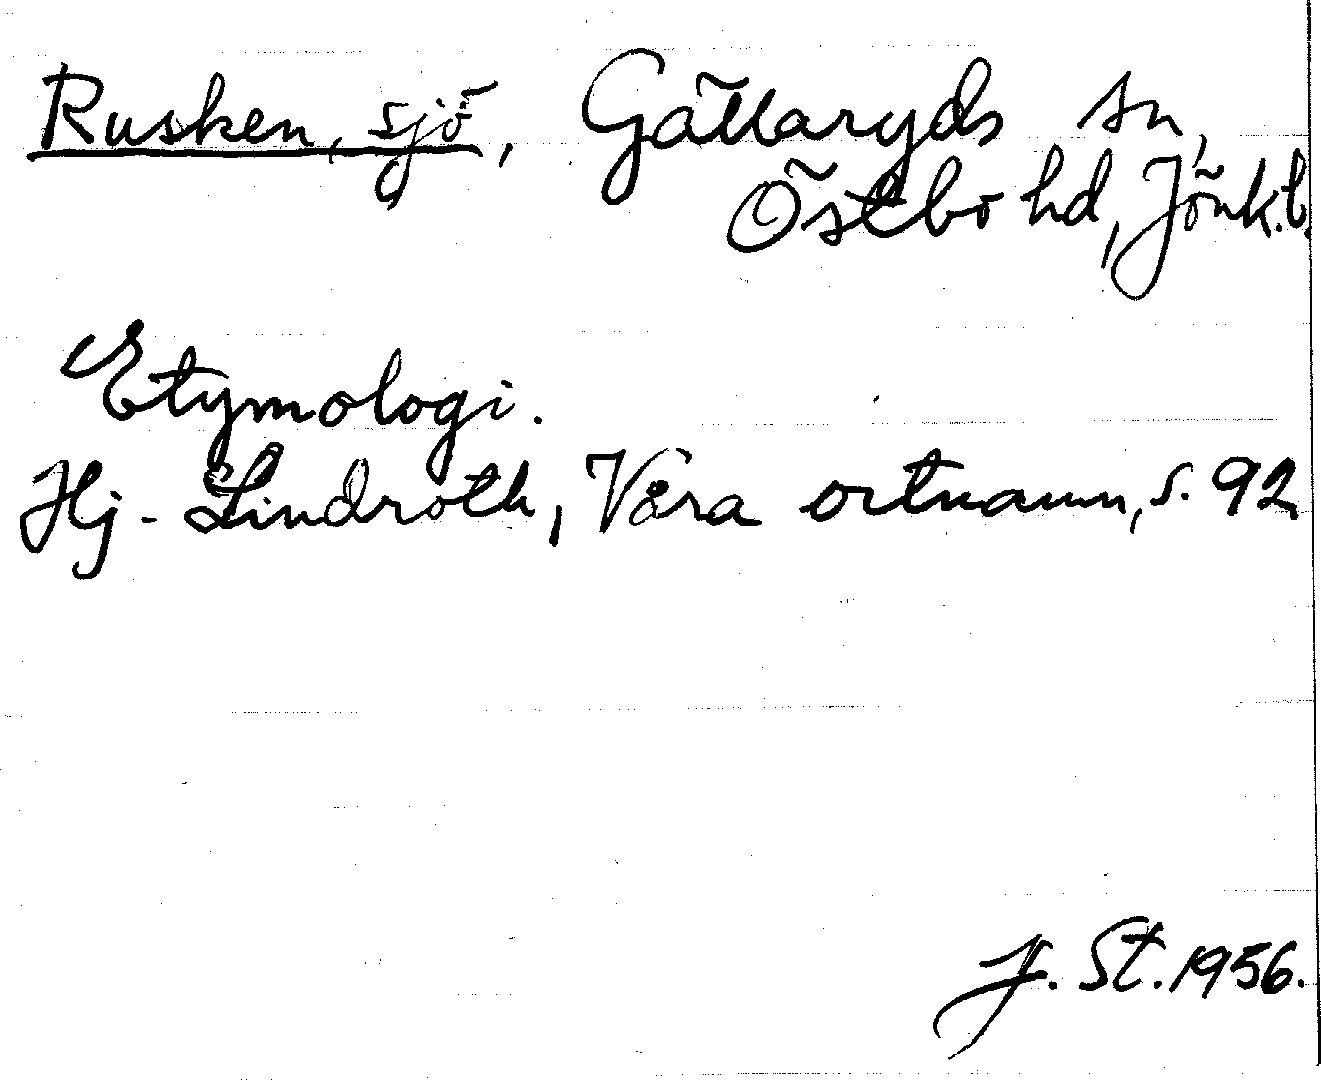 Rusken, sjö, Gällaryds sn,
Östbo hd, Jönk.l.
Etymologi.
Hj. Lindroth, Våra ortnamn, s. 92
J. St. 1956.